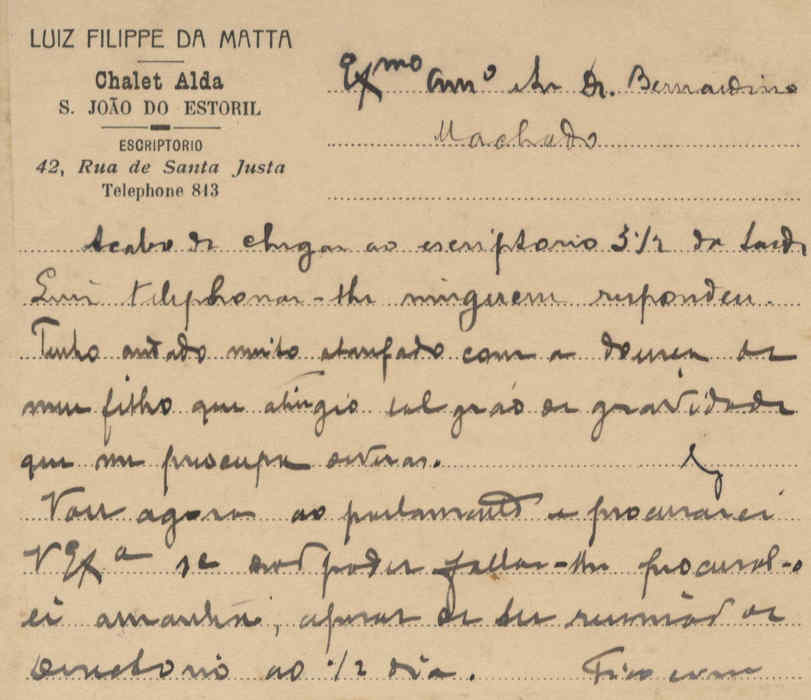 LUIZ FILIPPE DA MATTA
Chalet Alda
S. JOÃO DO ESTORIL
ESCRIPTORIO
42, Rua de Santa Justa
Telephone 813
Exmo Amo Dr. Bernardino
Machado
Acabo de chegar ao escriptorio 3 1/2 da tarde
Quiz telephonar-lhe ninguem respondeu.
Tenho andado muito atarefado com a doença de
meu filho que atingio tal gráo de gravidade
que me precupa deveras.
Vou agora ao parlamento e procurarei
V Exa se não poder fallar-lhe procural-o
ei amanhã, apesar de ter reunião de
Directorio ao 1/2 dia. Fico com